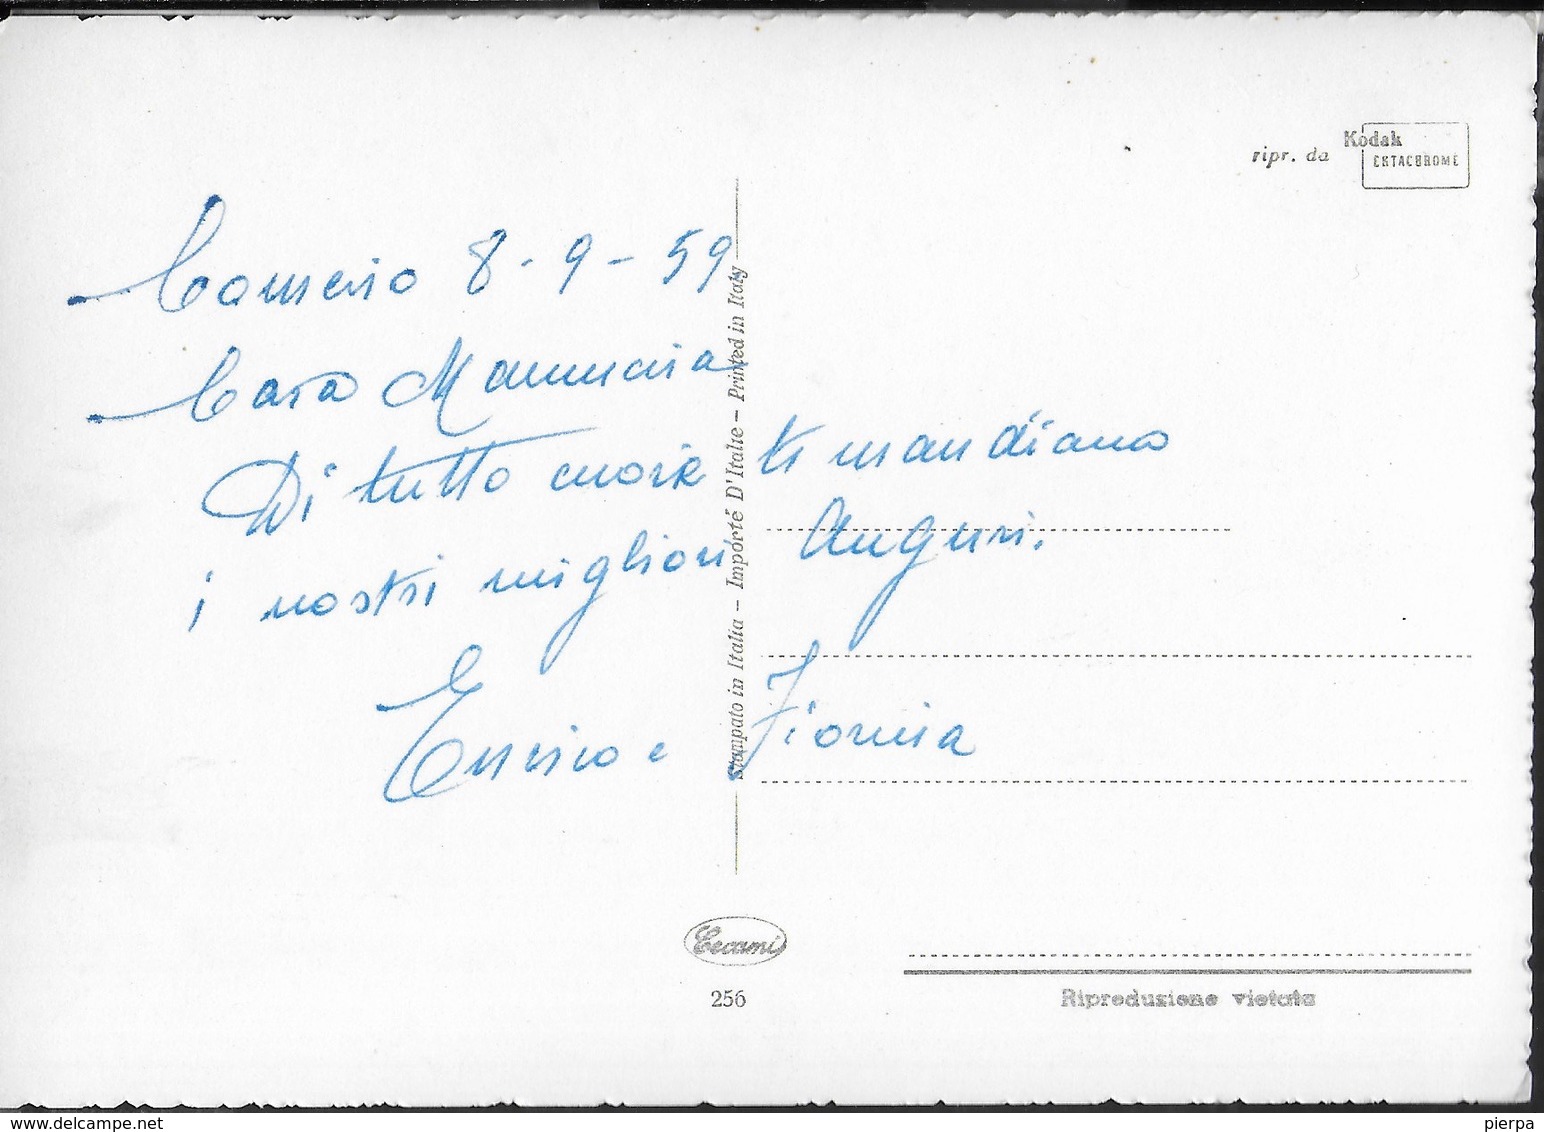 ripr. da Kodak
EKTACHROME
8 - 9 - 59
Cara Mammina
Di tutto cuore ti mandiamo
i nostri migliori Auguri.
Enrico e Fiornia
Stampato in Italia – Importé D'Italie – Printed in Italy
Cecami
256
Riproduzione vietata
www.delcampe.net
pierpa